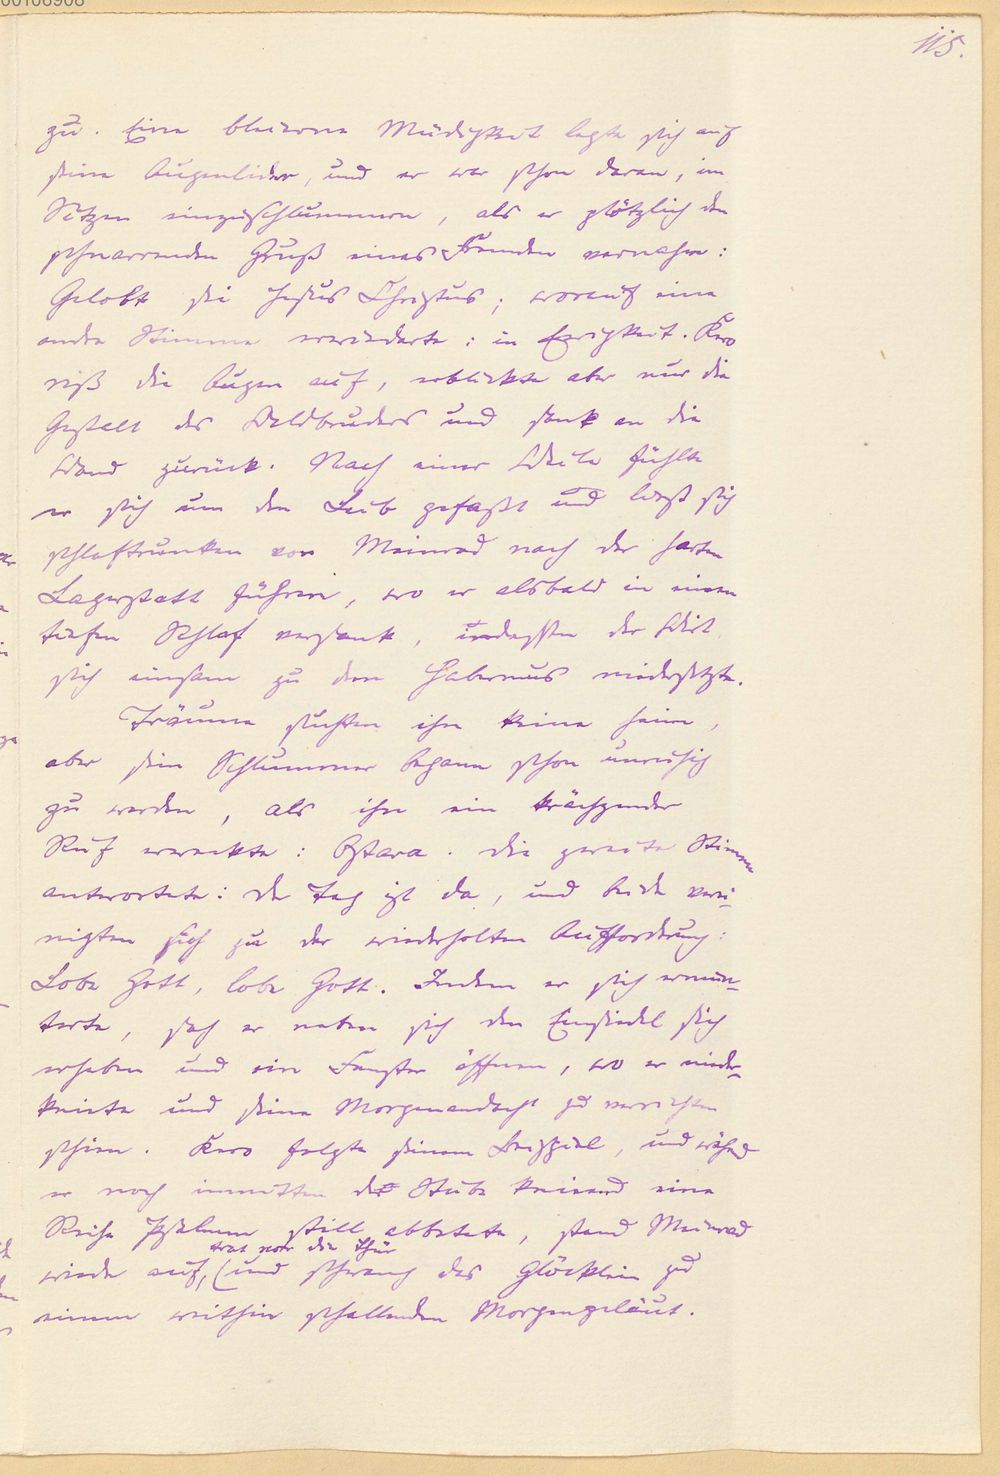 00106908
115.
zu. Eine bleierne Müdigkeit legte sich auf
seine Augenlider, und er war schon daran, im
Sitzen einzuschlummern, als er plötzlich den
schnarrenden Gruß eines Fremden vernahm:
Gelobt sei Jesus Christus; worauf eine
andre Stimme erwiederte: in Ewigkeit. Kero
riß die Augen auf, erblickte aber nur die
Gestalt des Waldbruders und sank an die
Wand zurück. Nach einer Weile fühlte
er sich um den Leib gefaßt und ließ sich
schlaftrunken von Meinrad nach der harten
Lagerstatt führen, wo er alsbald in einen
tiefen Schlaf versank, indessen der Wirt
sich einsam zu dem Habermus niedersetzte.
Träume suchten ihn keine heim,
aber sein Schlummer begann schon unruhig
zu werden, als ihn ein krächzender
Ruf erweckte: Ostara. die zweite Stimme
antwortete: der Tag ist da, und beide verei-
nigten sich zu der wiederholten Aufforderung:
Lobe Gott, lobe Gott. Indem er sich ermun-
terte, sah er neben sich den Einsiedel sich
erheben und ein Fenster öffnen, wo er nieder-
kniete und seine Morgenandacht zu verrichten
schien. Kero folgte seinem Beispiel, und während
er noch inmitten der Stube knieend eine
Reihe Psalmen still abbetete, stand Meinrad
trat vor die Thür
wieder auf, (und schwang das Glöcklein zu
einem weithin schallenden Morgengeläut.